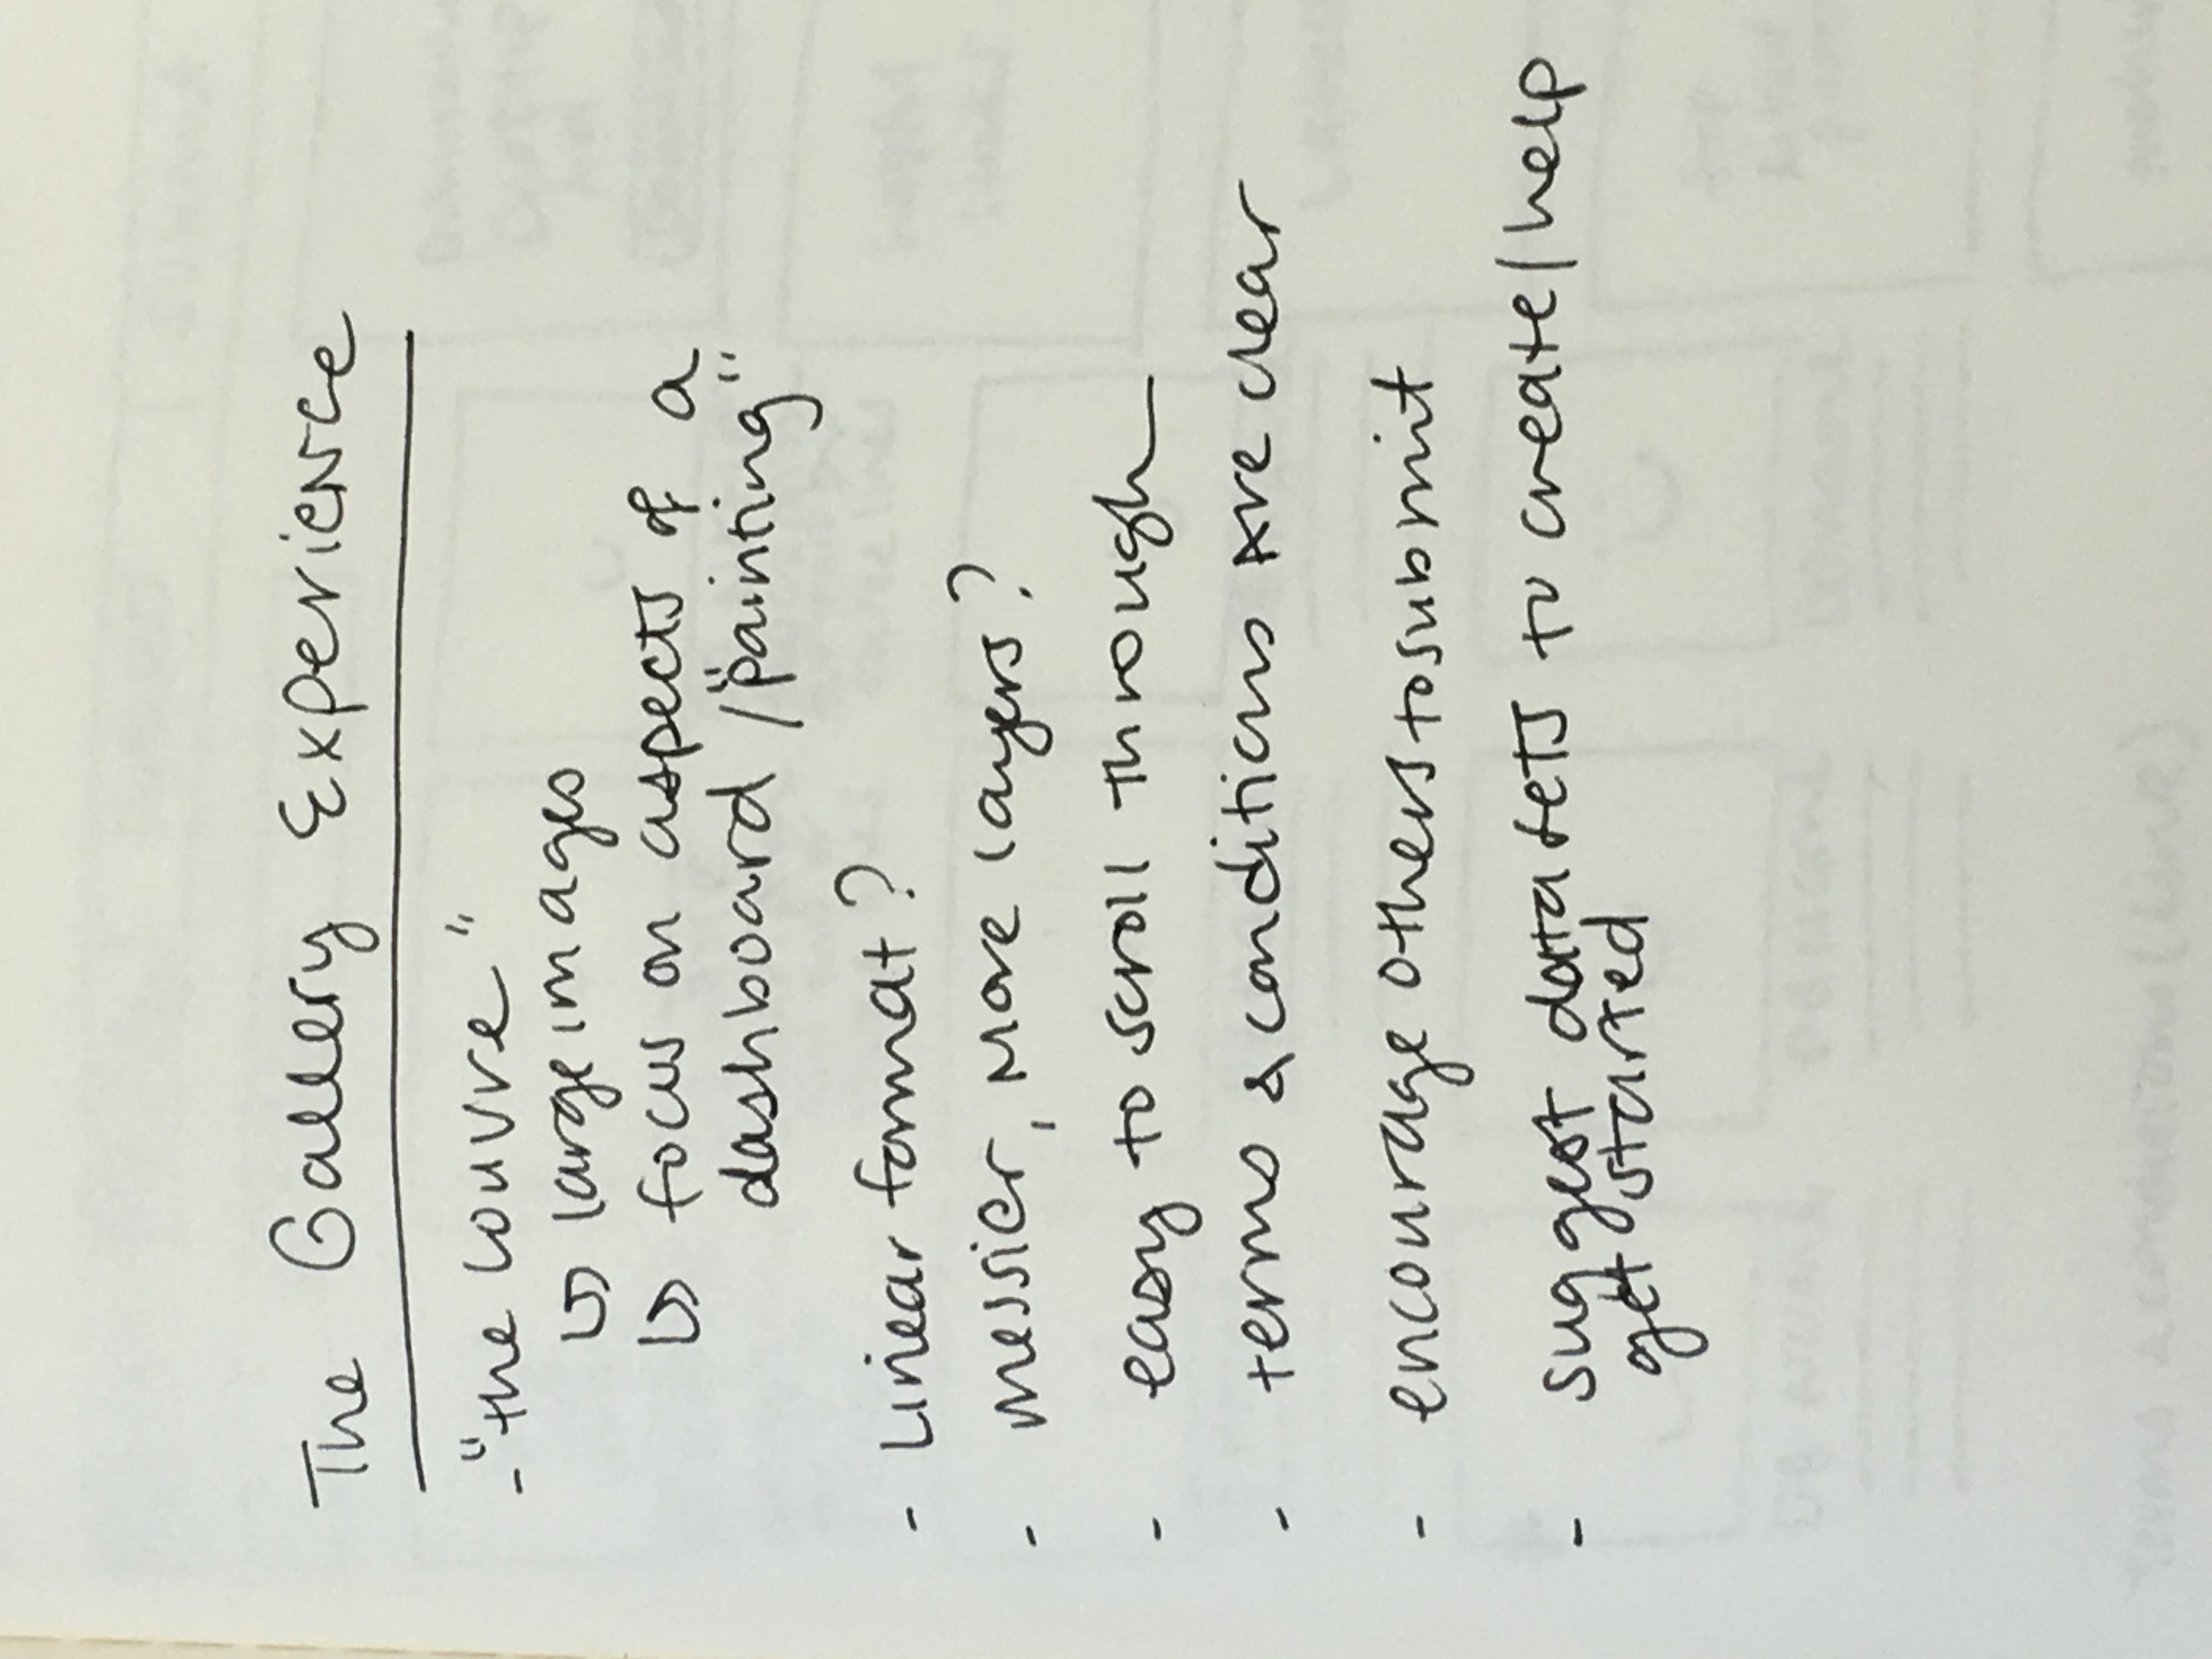 The Gallery Experience
- "the Louvre"
↳ large images
↳ focus on aspects of a
dashboard / "painting"
- Linear format?
- messier, more layers?
- easy to scroll through
- terms & conditions are clear
- encourage others to submit
- suggest datasets to create/help
get started